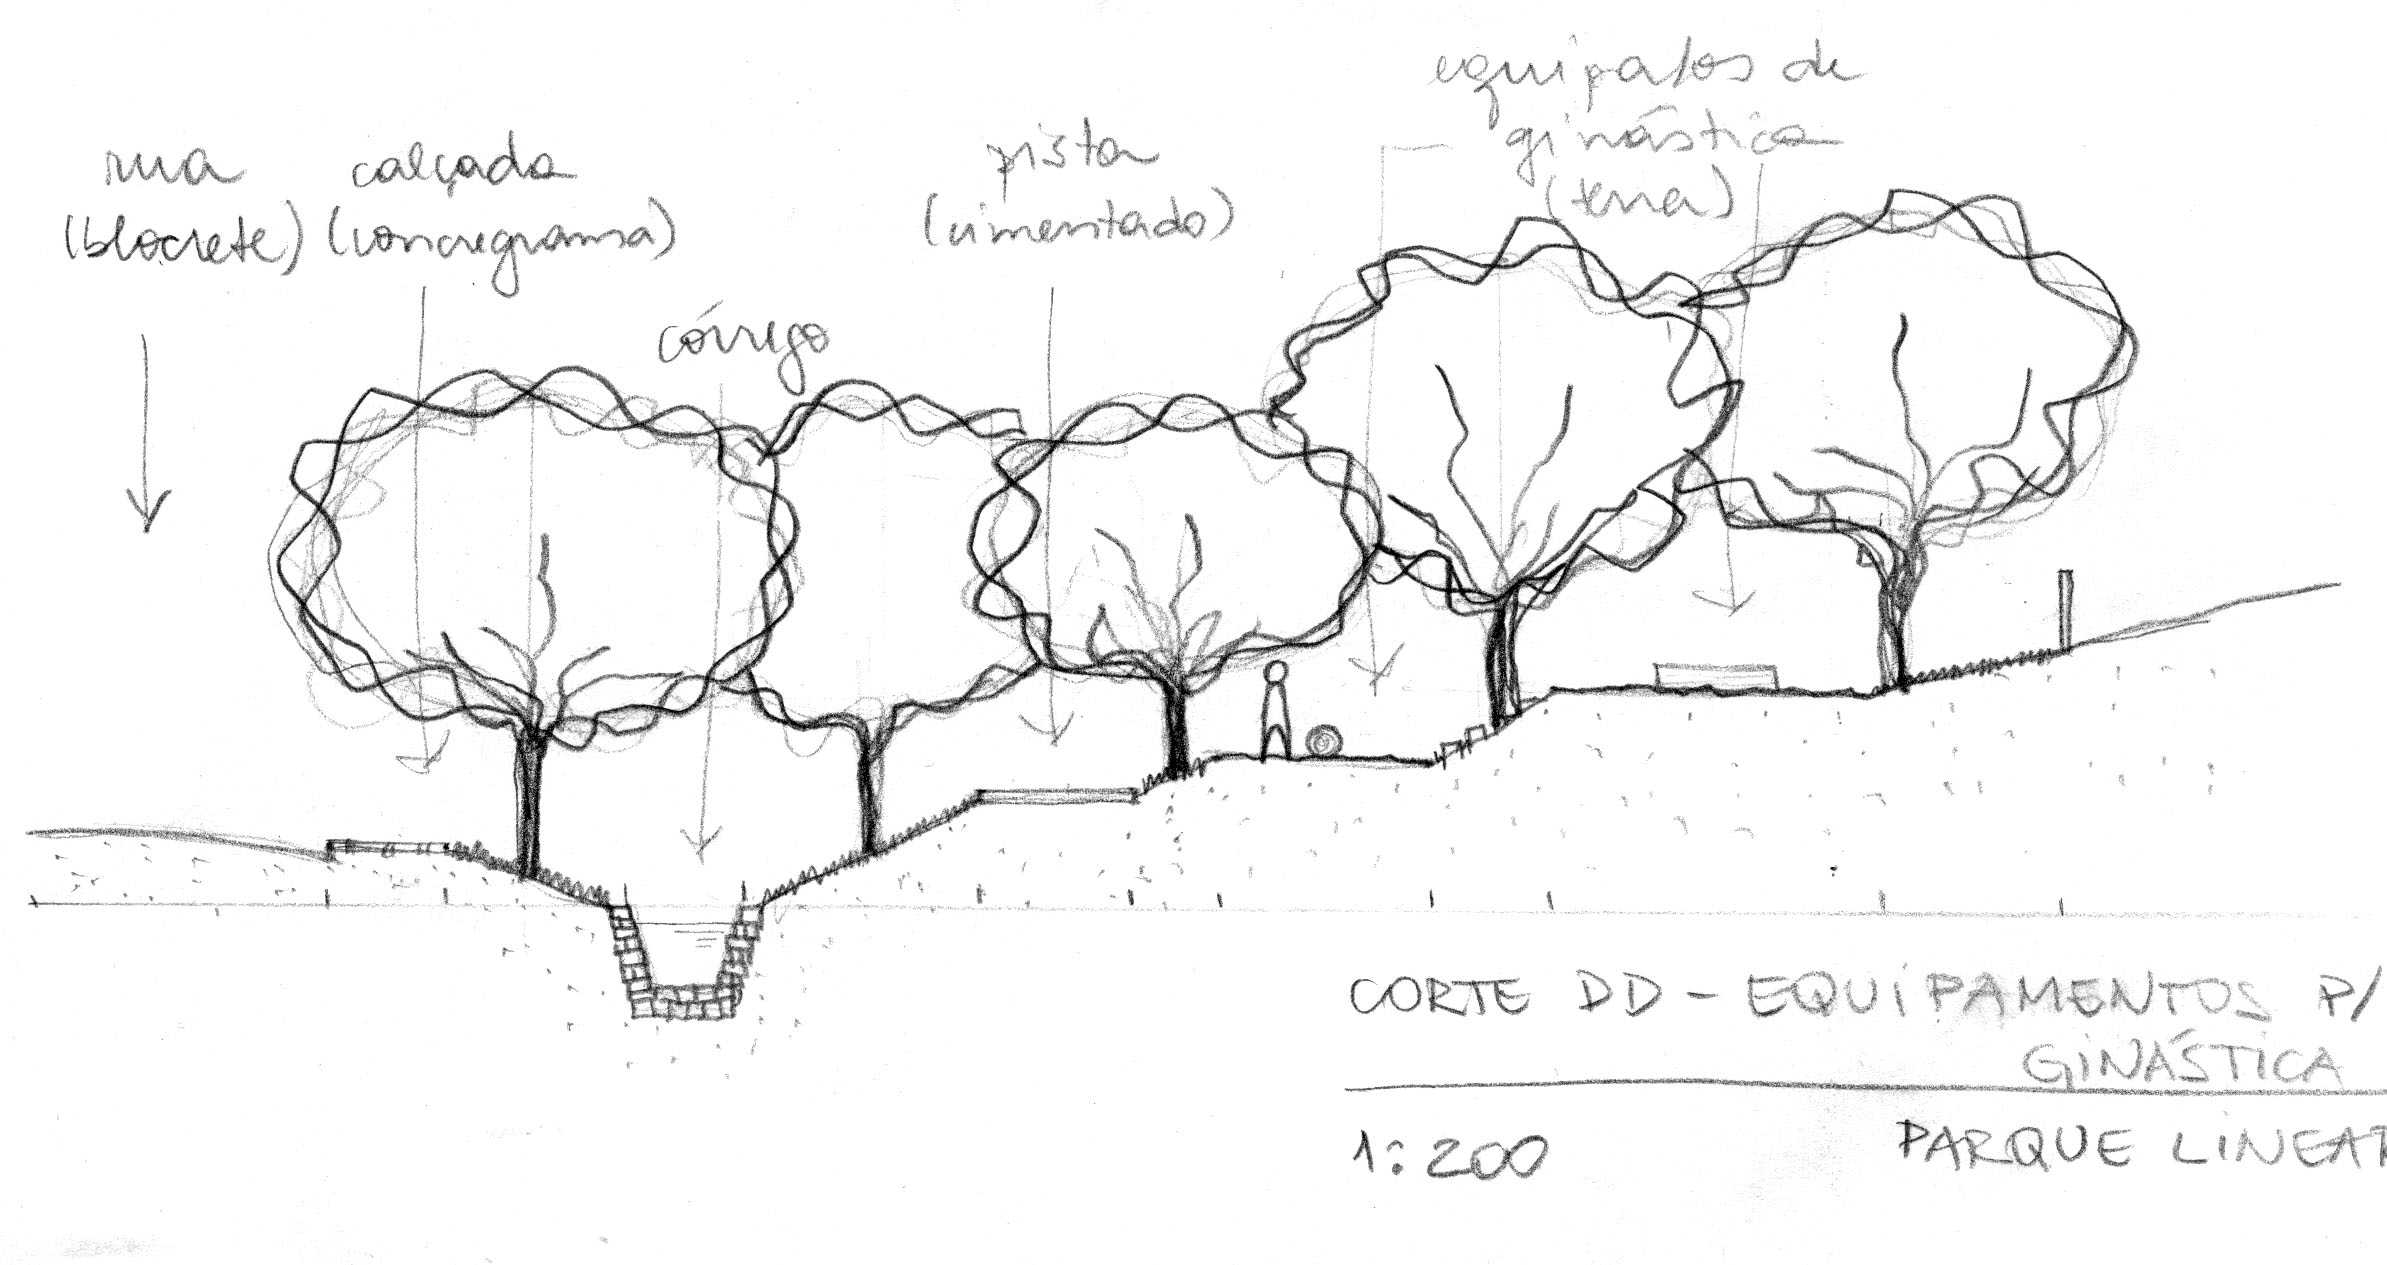 equipatos de
ginástica
(terra)
rua
(blocrete)
calçada
(concregrama)
pista
(cimentado)
córrego
CORTE DD - EQUIPAMENTOS P/
GINÁSTICA
1:200
PARQUE LINEAR